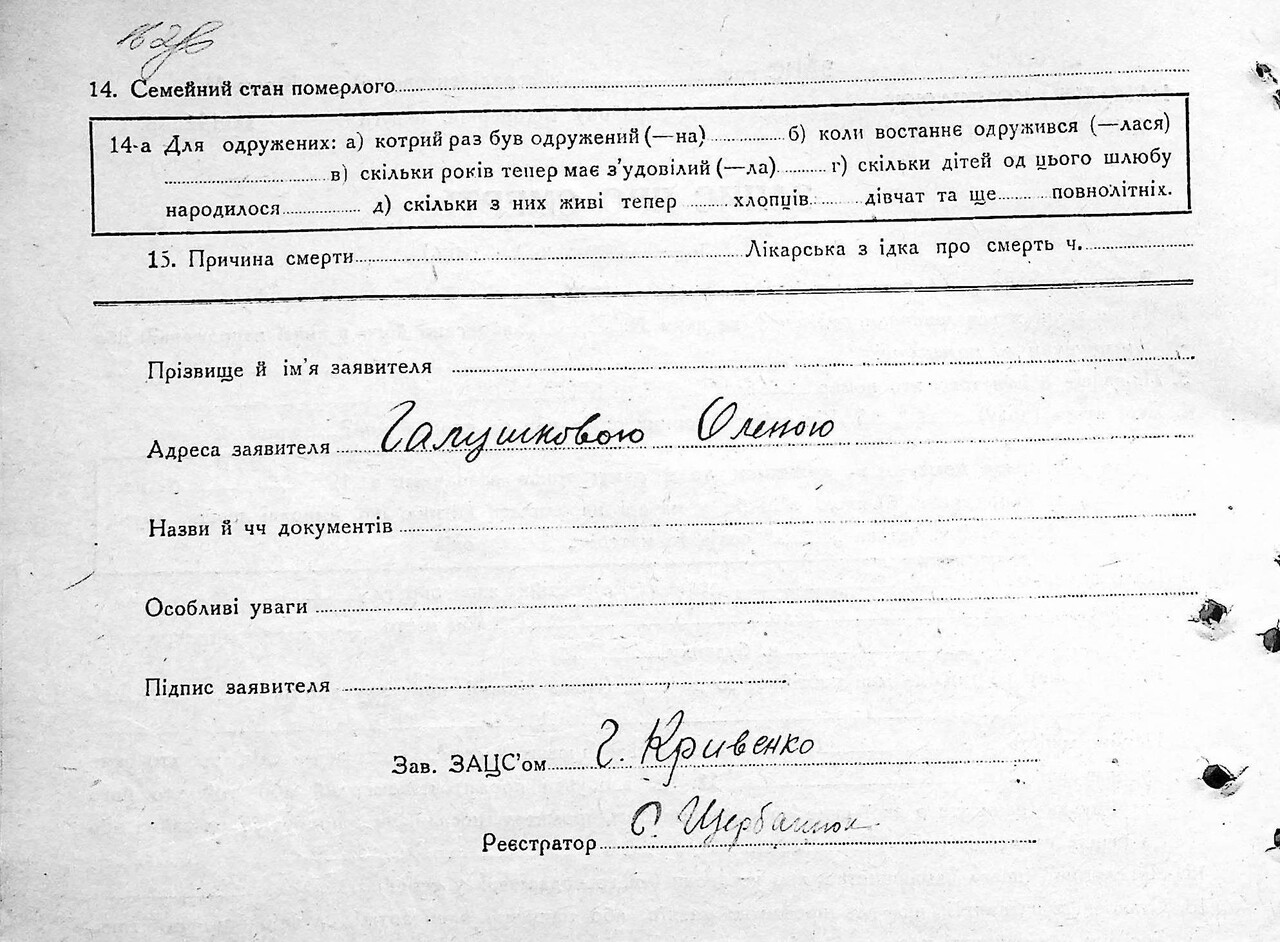 14. Семейний стан померлого
14-а Для одружених: а) котрий раз був одружений (—на) б) коли востаннє одружився (—лася)
в) скільки років тепер має з'удовілий (—ла) г) скільки дітей од цього шлюбу
народилося д) скільки з них живі тепер хлопців дівчат та ще повнолітніх.
15. Причина смерти Лікарська з ідка про смерть ч.
Прізвище й ім'я заявителя
Адреса заявителя Галушковою Оленою
Назви й чч документів
Особливі уваги
Підпис заявителя
Зав. ЗАЦС'ом Г. Кривенко
Реєстратор